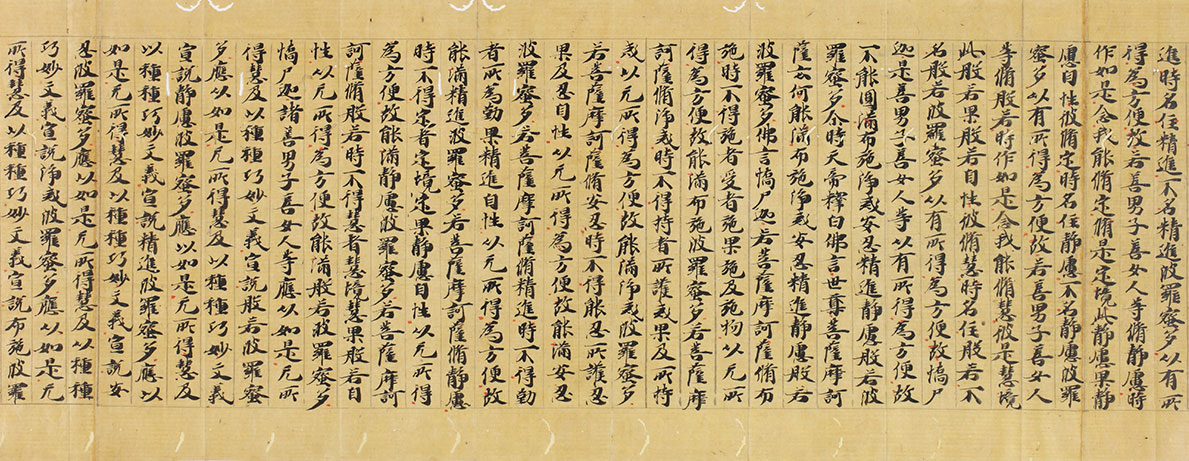 進時名住精進不名精進波羅蜜多以有所
得為方便故若善男子善女人等脩靜慮時
作如是念我能脩定脩是定境此靜慮果靜
慮自性彼脩定時名住靜慮不名靜慮波羅
蜜多以有所得為方便故若善男子善女人
等脩般若時作如是念我能脩慧彼是慧境
此般若果般若自性彼脩慧時名住般若不
名般若波羅蜜多以有所得為方便故憍尸
迦是善男子善女人等以有所得為方便故
不能圓滿布施淨戒安忍精進靜慮般若波
羅蜜多尒時天帝釋白佛言世尊菩薩摩訶
薩云何能滿布施淨戒安忍精進靜慮般若
波羅蜜多佛言憍尸迦若菩薩摩訶薩脩布
施時不得施者受者施果施及施物以无所
得為方便故能滿布施波羅蜜多若菩薩摩
訶薩脩淨戒時不得持者所護戒果及所持
戒以无所得為方便故能滿淨戒波羅蜜多
若菩薩摩訶薩脩安忍時不得能忍所護忍
果及忍自性以无所得為方便故能滿安忍
波羅蜜多若菩薩摩訶薩脩精進時不得勤
者所為勤果精進自性以无所得為方便故
能滿精進波羅蜜多若菩薩摩訶薩脩靜慮
時不得定者定境定果靜慮自性以无所得
為方便故能滿靜慮波羅蜜多若菩薩摩訶
訶薩脩般若時不得慧者慧境慧果般若自
性以无所得為方便故能滿般若波羅蜜多
憍尸迦諸善男子善女人等應以如是无所
得慧及以種種巧妙文義宣說般若波羅蜜
多應以如是无所得慧及以種種巧妙文義
宣說靜慮波羅蜜多應以如是无所得慧及
以種種巧妙文義宣說精進波羅蜜多應以
如是无所得慧及以種種巧妙文義宣說安
忍波羅蜜多應以如是无所得慧及以種種
巧妙文義宣說淨戒波羅蜜多應以如是无
所得慧及以種種巧妙文義宣說布施波羅